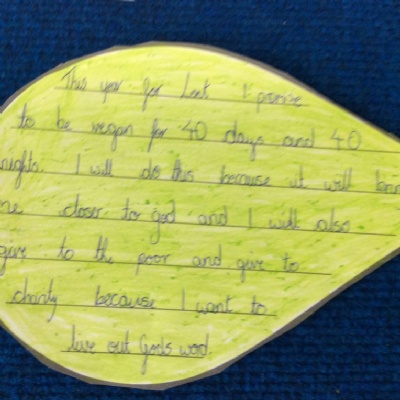 This year for Lent I promise
to be vegan for 40 days and 40
nights. I will do this because it will bring
me closer to god and I will also
give to the poor and give to
charity because I want to
live out Gods word.